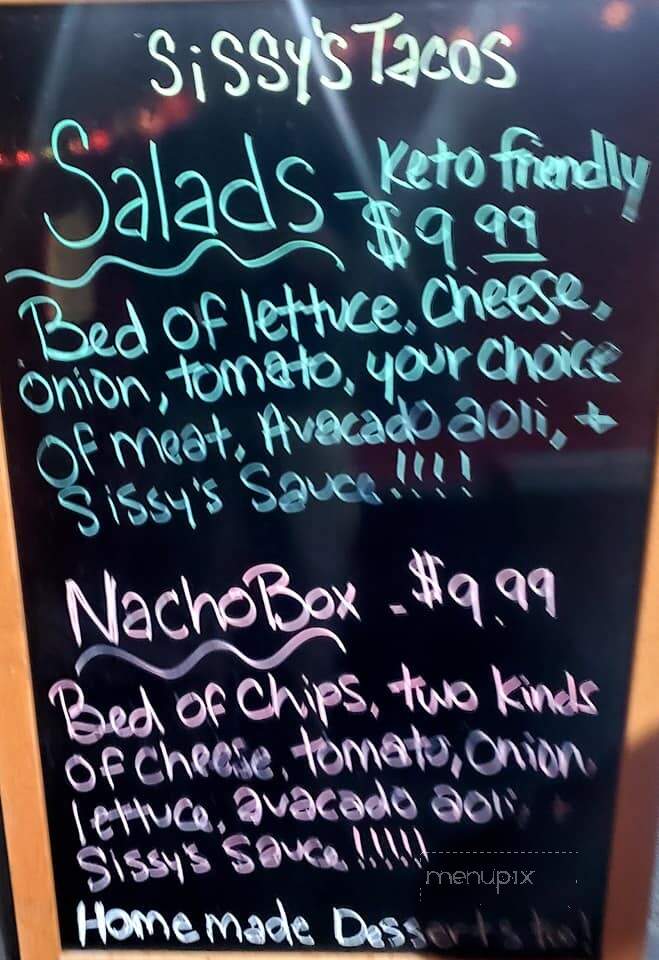 Sissy's Tacos
Salads - Keto friendly
$9 99
Bed of lettuce, cheese,
onion, tomato, your choice
of meat, Avacado aoli, +
Sissy's Sauce!!!!
Nacho Box - $9.99
Bed of chips, two kinds
of cheese, tomato, onion,
lettuce, avacado aoli, +
Sissy's Sauce!!!!!
menupix
Homemade Desserts too!